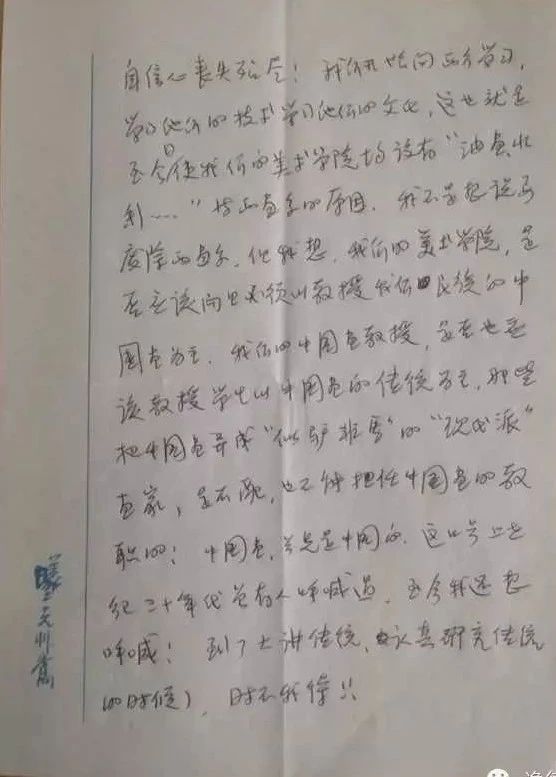 自信心丧失殆尽！我们把眼向西方学习，
学习他们的技术学习他们的文化，这也就是
至今日使我们的美术学院均设有"油画水
彩……"等西画系的原因。我不是想说马
废除西画系，但我想，我们的美术学院，是
否应该而且必须以教授我们民族的中
国画为主，我们的中国画教授，是否也应
该教授学生以中国画的传统为主，那些
把中国画弄成"似驴非马"的"现代派"
画家，是不配，也不能担任中国画的教
职的！中国画，总是是中国的，这口号上世
纪二十年代曾有人呼喊过，至今我还想
呼喊！到了大讲传统，认真研究传统
的时候了，时不我待！！